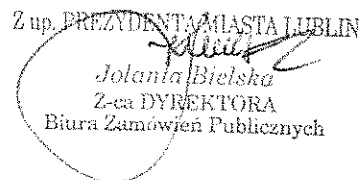 Z up. PREZYDENTA MIASTA LUBLIN
Jolanta Bielska
Z-ca DYREKTORA
Biura Zamówień Publicznych